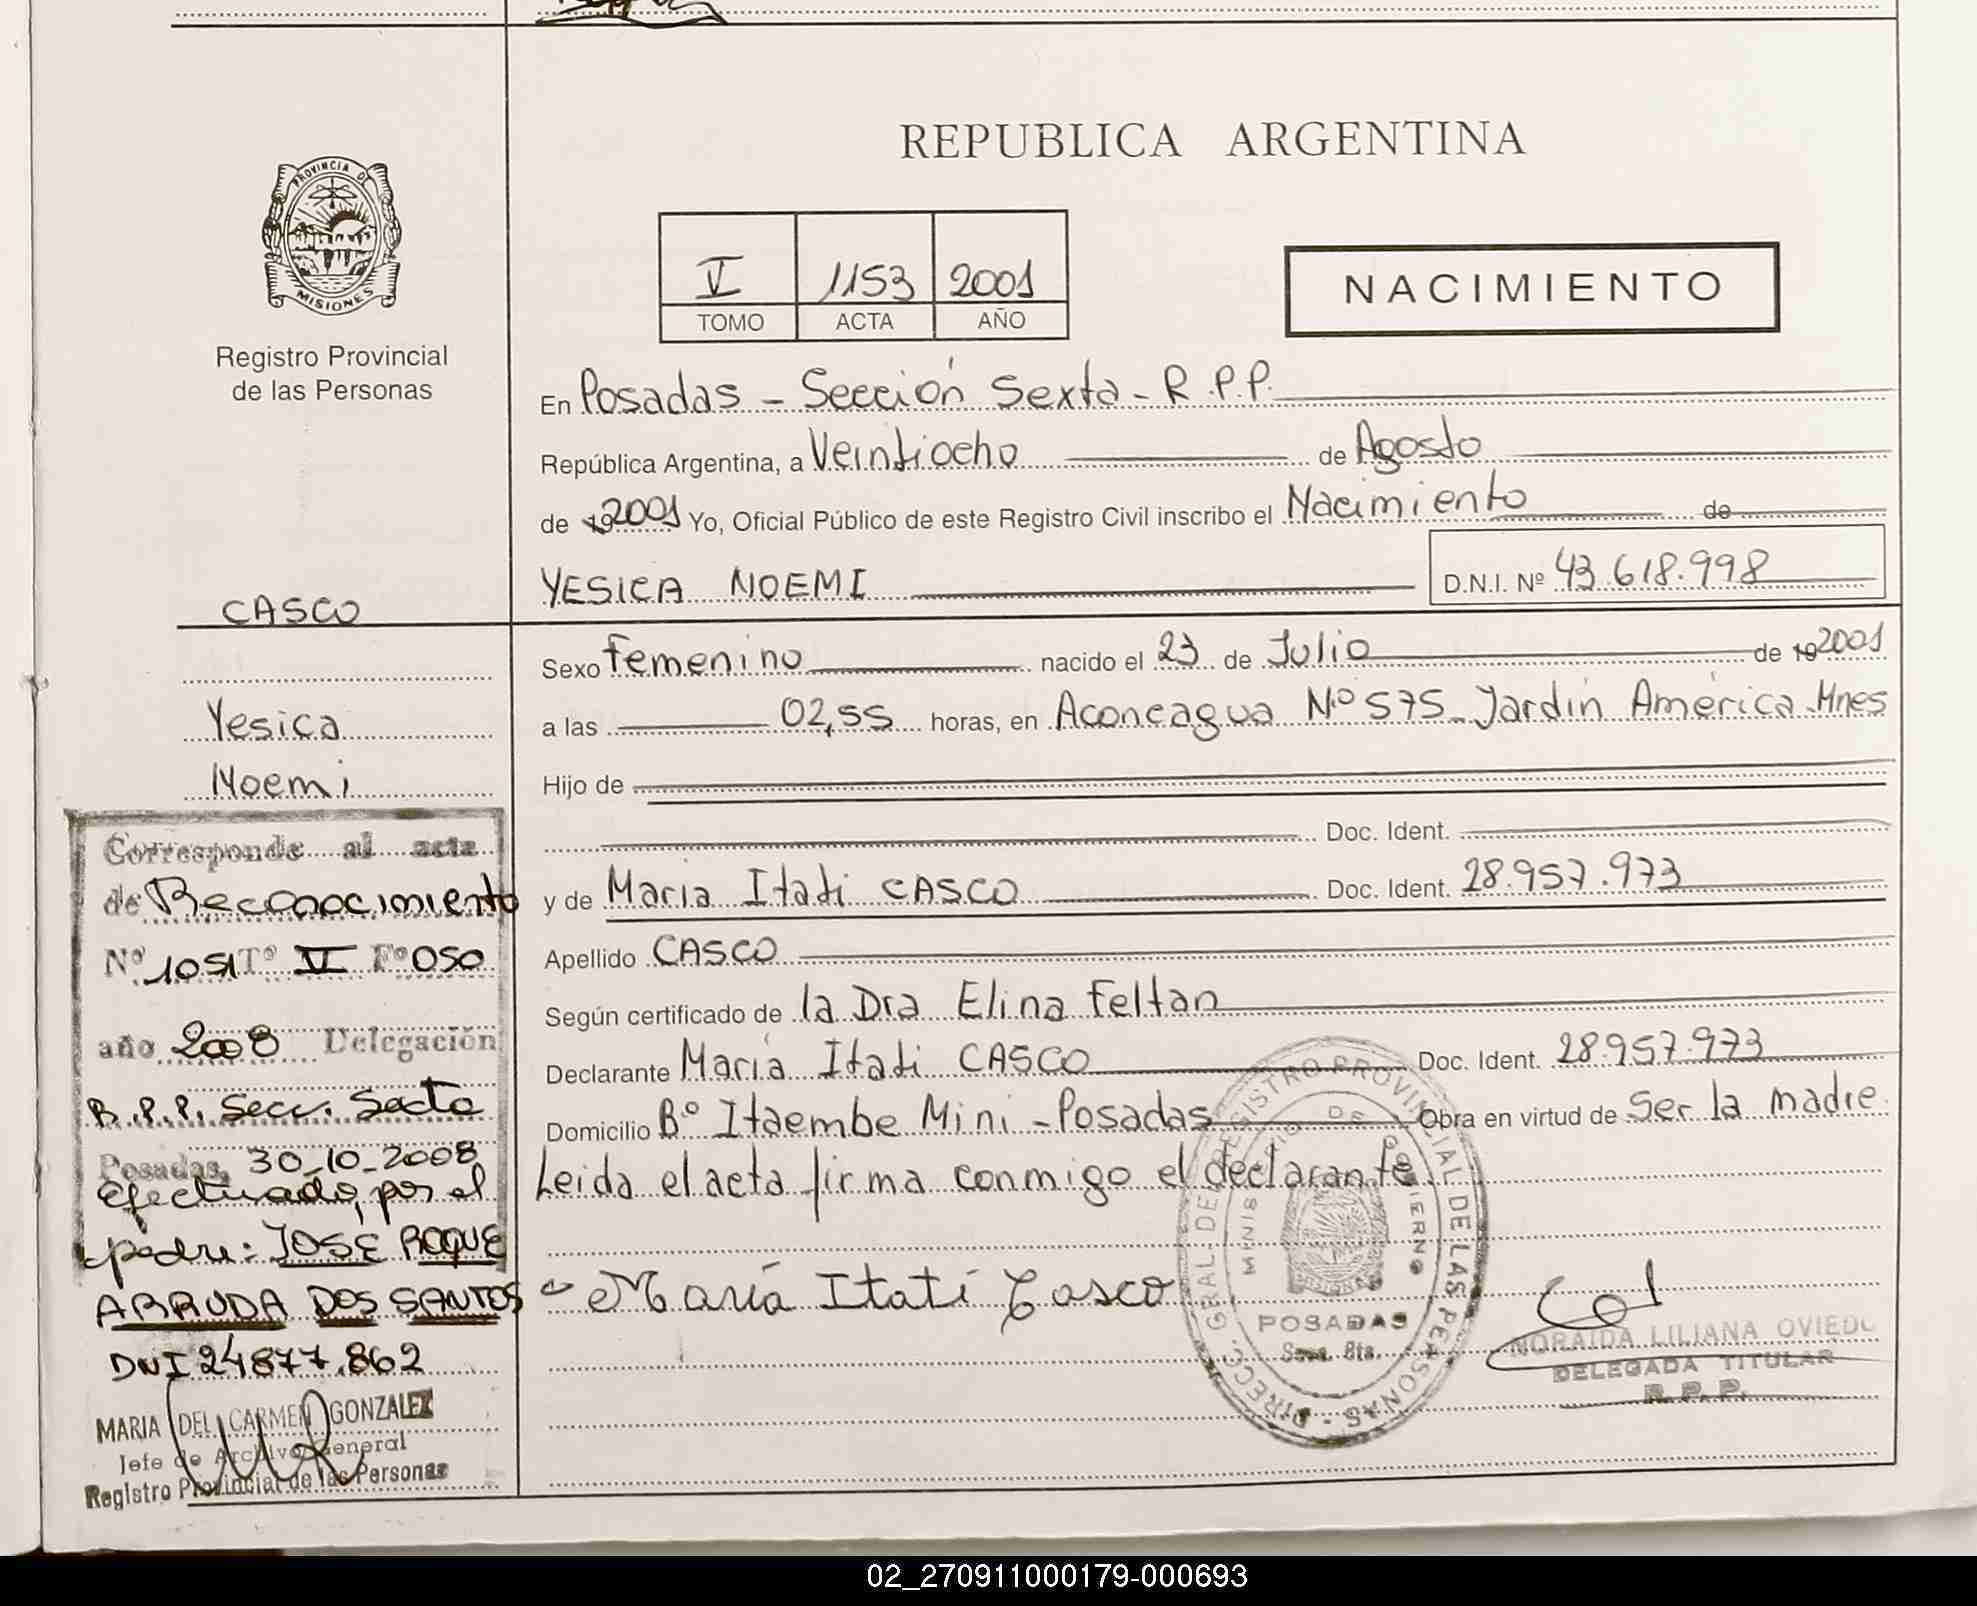 REPUBLICA ARGENTINA
PROVINCIA DE
MISIONES
Registro Provincial
de las Personas
V 1153 2001
TOMO ACTA AÑO
NACIMIENTO
En Posadas - Sección Sexta - R.P.P.
República Argentina, a Veintiocho de Agosto
de 19 2001 Yo, Oficial Público de este Registro Civil inscribo el Nacimiento de
YESICA NOEMI D.N.I. Nº 43.618.998
CASCO
Yesica
Noemi
Sexo femenino nacido el 23 de Julio de 19 2001
a las 02,55 horas, en Aconcagua Nº 575 - Jardín América - Mnes
Hijo de
Doc. Ident.
y de Maria Itati CASCO Doc. Ident. 28.957.973
Apellido CASCO
Según certificado de la Dra Elina Feltan
Declarante María Itati CASCO Doc. Ident. 28.957.973
Domicilio Bº Itaembe Mini - Posadas Obra en virtud de Ser la madre
Leida el acta firma conmigo el declarante.
María Itatí Casco
DIRECC. GRAL DEL REGISTRO PROVINCIAL DE LAS PERSONAS
MINISTERIO DE GOBIERNO
POSADAS
Secc. 6ta.
NORAIDA LILIANA OVIEDO
DELEGADA TITULAR
R.P.P.
Corresponde al acta
de Reconocimiento
Nº 1051 Tº VI Fº 050
año 2008 Delegación
R.P.P. Secc. Sexta
Posadas, 30-10-2008
Efectuado, por el
padre: JOSÉ ROQUE
ARRUDA DOS SANTOS
DNI 24877.862
MARIA DEL CARMEN GONZALEZ
Jefe de Archivo General
Registro Provincial de las Personas
02_270911000179-000693